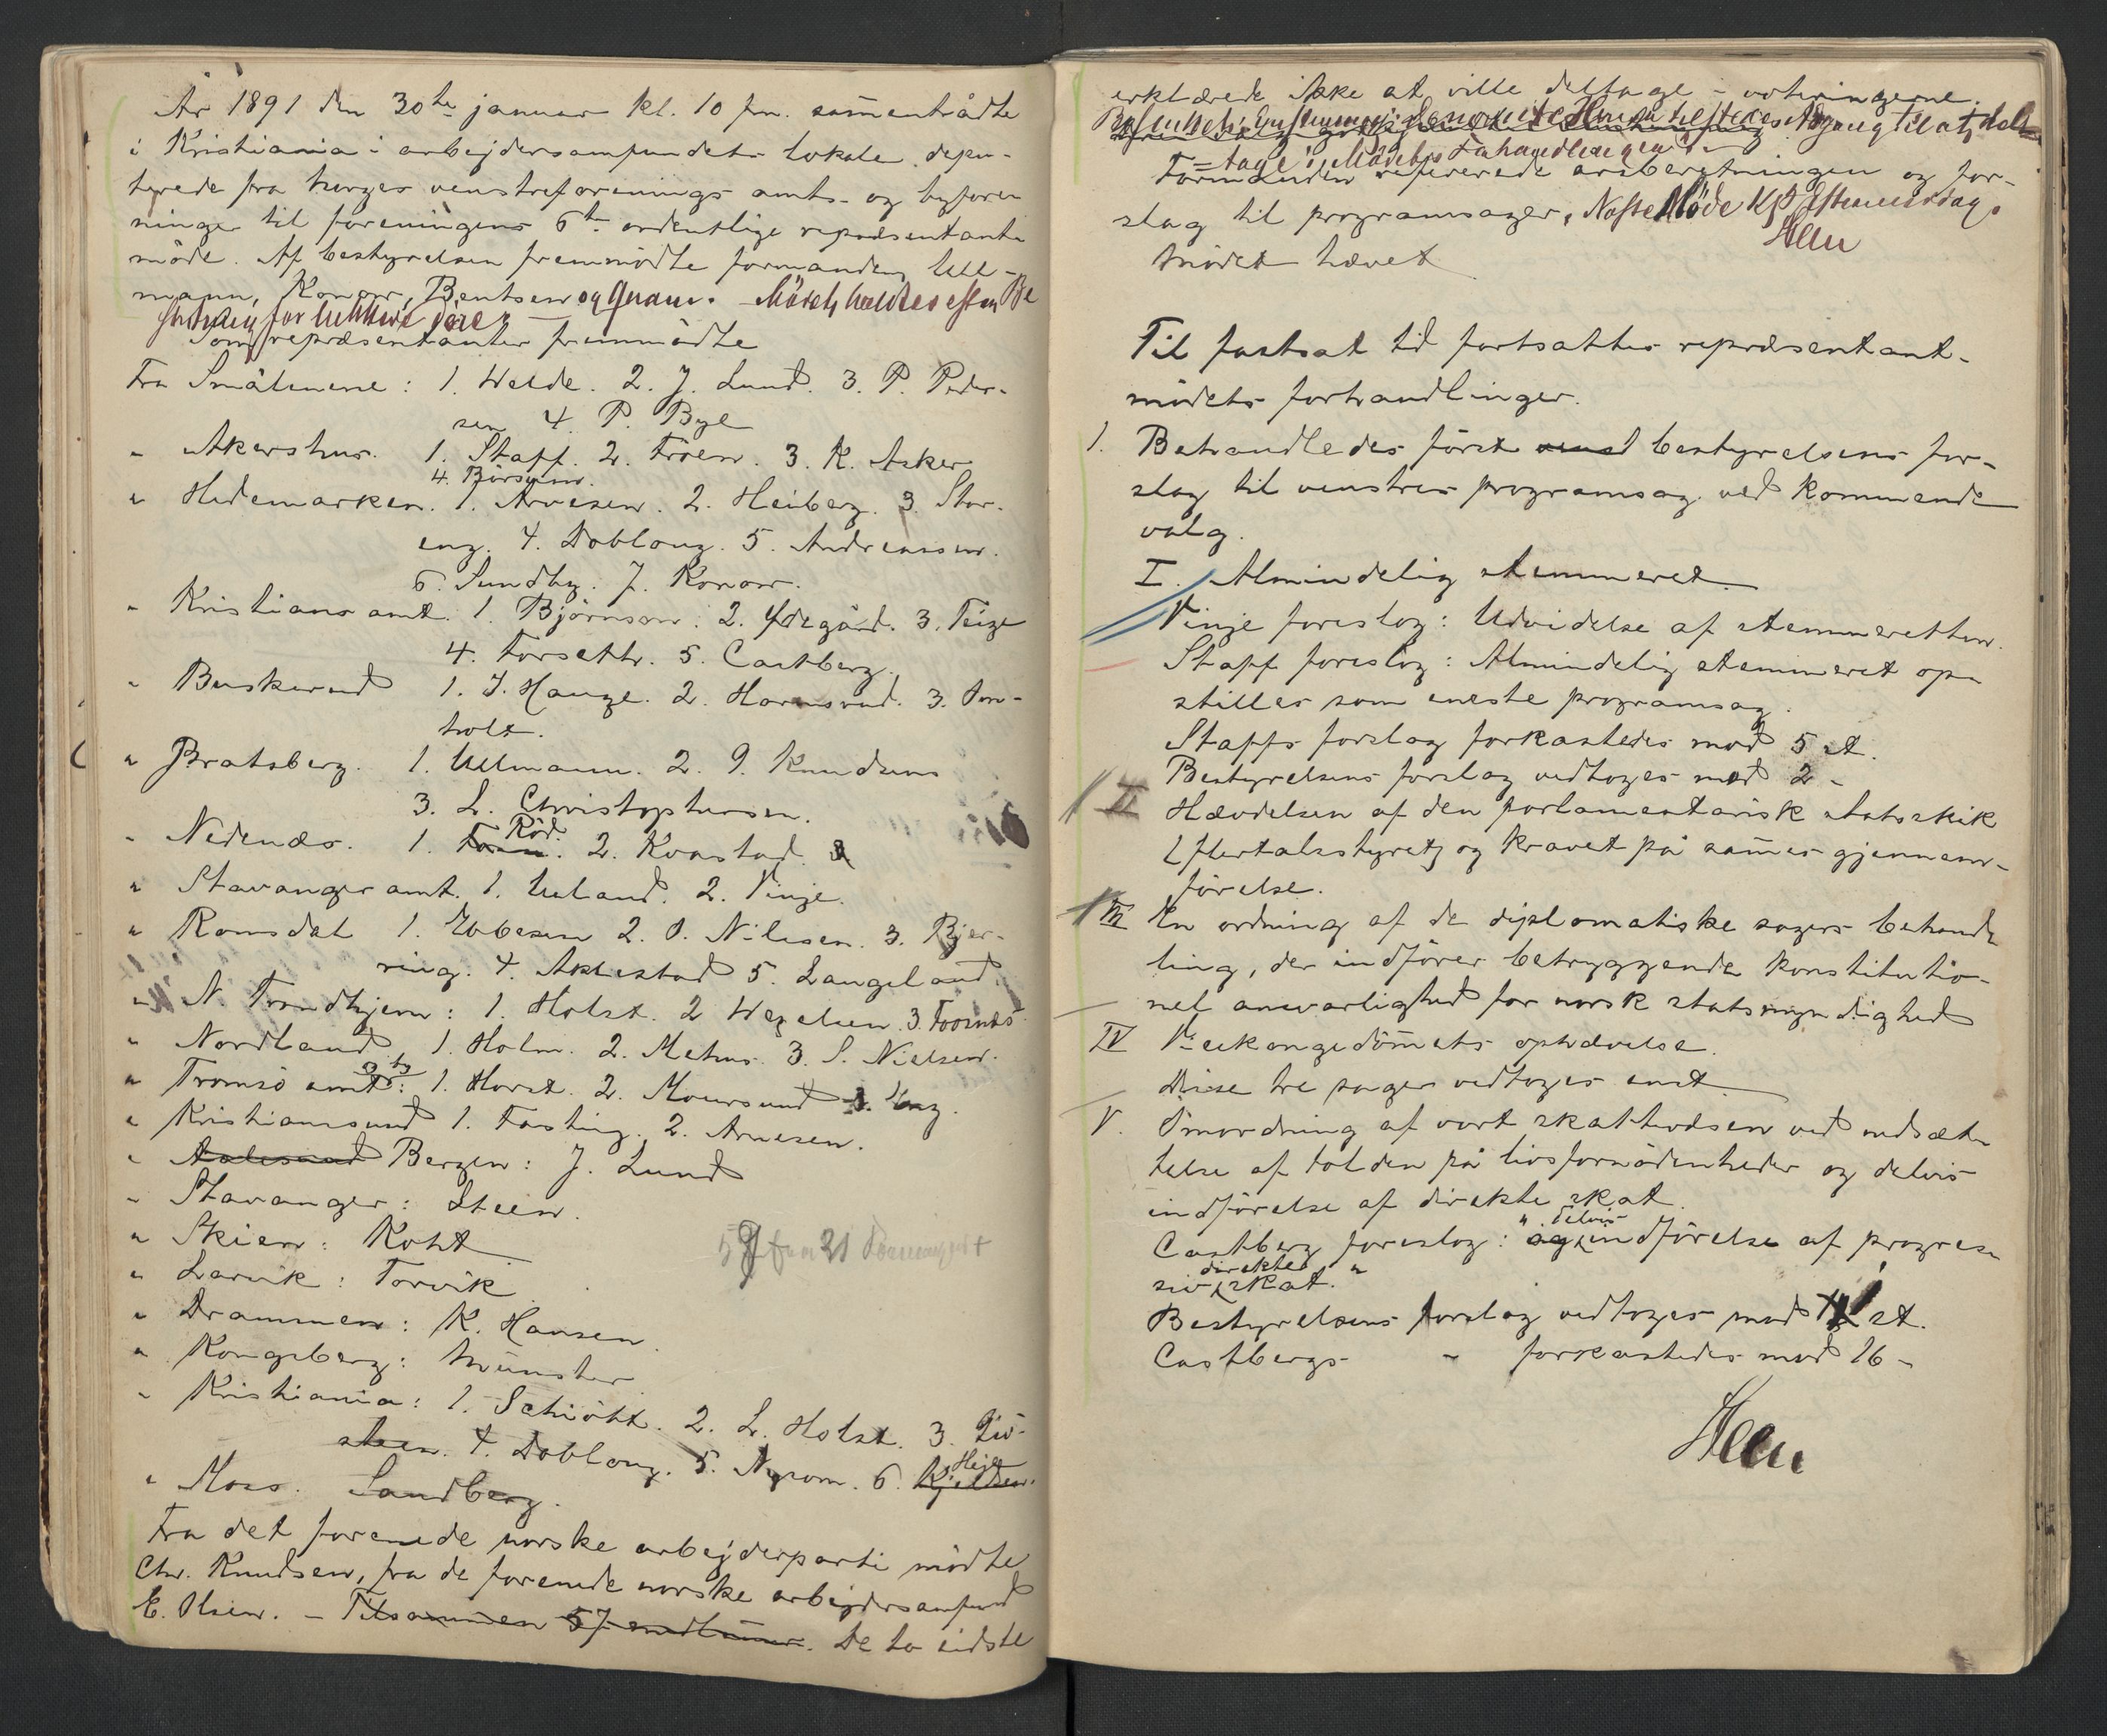 År 1891 den 30te januar kl. 10 fm. sam̄entrådte
i Kristiania i arbejdersamfundets lokale depu-
terede fra Norges venstreforenings amts- og byfore-
ninger til foreningens 6te ordentlige repræsentant-
møde. Af bestyrelsen fremmødte formanden Ull-
mann, Konow, Bentsen og Qvam. Mødet holdtes efter Be
slutning for lukkede døre.
Som repræsentanter fremmødte
Fra Smålenene: 1. Welde. 2. J. Lund. 3. P. Peder-
sen 4. P. Byl
" Akershus. 1. Stapf. 2. Frøen. 3. K. Asker
4. Børsum.
" Hedemarken. 1. Arvesen. 2. Heiberg. 3. Stor-
eng. 4. Dobloug. 5. Andreassen.
6. Sundby. 7. Konow.
" Kristians amt. 1. Bjørnson. 2. Ødegård. 3. Teige
4. Forseth. 5. Castberg.
" Buskerud 1. J. Hauge. 2. Hornsrud. 3.
holt.
" Bratsberg. 1. Ullmann. 2. G. Knudsen
3. L. Christophersen.
" Nedenæs. 1. Röd. 2. Kvastad.
" Stavanger amt. 1. Ueland. 2. Vinje.
" Romsdal 1. Ebbesen 2. O. Nilssen. 3. Bjer-
ring. 4. Aklestad 5. Langeland.
" N. Trondhjem: 1. Holst. 2 Wexelsen. 3. Foosnæs
" Nordland 1. Holm. 2. Mehus. 3. S. Nielsen.
" Tromsö amt og by: 1. Horst. 2. Moursund
" Kristianssund 1. Fasting. 2. Arnesen.
" Aalesund Bergen: J. Lund
" Stavanger: Steen.
" Skien: Koht
" Larvik: Torvik
" Drammen: K. Hansen
" Kongsberg: Münster
" Kristiania: 1. Schiött. 2. L. Holst. 3. Liv-
steen. 4. Dobloug. 5. Nysom. 6. Kjeldsen.
" Moss. Sandberg.
Fra det forenede norske arbejderparti mødte
Chr. Knudsen, fra de forenede norske arbejdersamfund
E. Olsen. – Tilsammen 57 De to sidste
erklærede ikke at ville deltage i voteringerne.
Besluttet: Enstemmig Adgang til at del
= tage i Mødets Forhandlinger.
Formanden refererede årsberetningen og for-
slag til programsager. Næste Møde Kl 5 Eftermiddag.
Mødet hævet
Til fastsat tid fortsattes repræsentant-
mødets forhandlinger.
1. Behandledes først bestyrelsens for-
slag til venstres programsag ved kommende
valg.
I. Almindelig stemmeret
Vinje foreslog: Udvidelse af stemmeretten.
Stapf foreslog: Almindelig stemmeret op-
stilles som eneste programsag.
Stapfs forslag forkastedes mod 5 st.
Bestyrelsens forslag vedtoges mod 2 –
II Hævdelsen af den parlamentarisk statsskik
(flertalsstyret) og kravet på sam̄es gjennem-
førelse.
III En ordning af de diplomatiske sagers behand-
ling, der indfører betryggende konstitutio-
nel ansvarlighed for norsk statsmyndighed
IV Vicekongedøm̄ets ophævelse.
Disse tre sager vedtoges enst.
V. Omordning af vort skattevæsen ved nedsæt-
telse af tolden på livsfornødenheder og delvis
indførelse af direkte skat.
Castberg foreslog: "og delvis indførelse af progres-
siv direkte skat."
Bestyrelsens forslag vedtoges mod st.
Castbergs " forkastedes mod 16 –